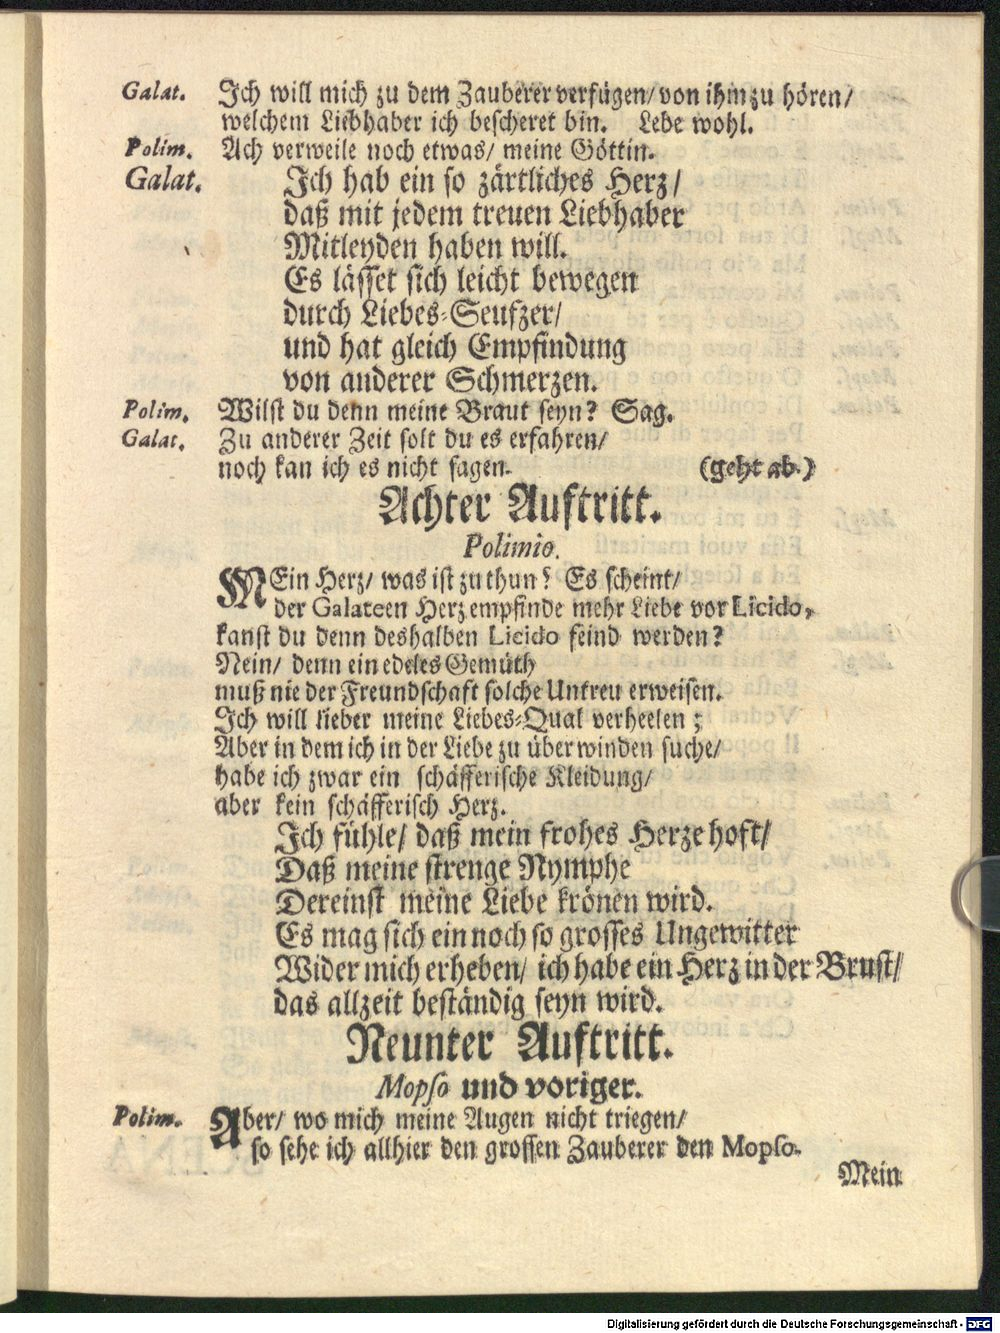 Galat. Ich will mich zu dem Zauberer verfügen/ von ihm zu hören/
welchem Liebhaber ich bescheret bin. Lebe wohl.
Polim. Ach verweile noch etwas/ meine Göttin.
Galat. Ich hab ein so zärtliches Herz/
daß mit jedem treuen Liebhaber
Mitleyden haben will.
Es lässet sich leicht bewegen
durch Liebes-Seufzer/
und hat gleich Empfindung
von anderer Schmerzen.
Polim. Wilst du denn meine Braut seyn? Sag.
Galat. Zu anderer Zeit solt du es erfahren/
noch kan ich es nicht sagen. (geht ab.)
Achter Auftritt.
Polimio.
MEin Herz/ was ist zu thun? Es scheint/
der Galateen Herz empfinde mehr Liebe vor Licido,
kanst du denn deshalben Licido feind werden?
Nein/ denn ein edeles Gemüth
muß nie der Freundschaft solche Untreu erweisen.
Ich will lieber meine Liebes-Qual verheelen;
Aber in dem ich in der Liebe zu überwinden suche/
habe ich zwar ein schäfferische Kleidung/
aber kein schäfferisch Herz.
Ich fühle/ daß mein frohes Herze hoft/
Daß meine strenge Nymphe
Dereinst meine Liebe krönen wird.
Es mag sich ein noch so grosses Ungewitter
Wider mich erheben/ ich habe ein Herz in der Brust/
das allzeit beständig seyn wird.
Neunter Auftritt.
Mopso und voriger.
Polim. Aber/ wo mich meine Augen nicht triegen/
so sehe ich allhier den grossen Zauberer den Mopso.
Mein
Digitalisierung gefördert durch die Deutsche Forschungsgemeinschaft - DFG